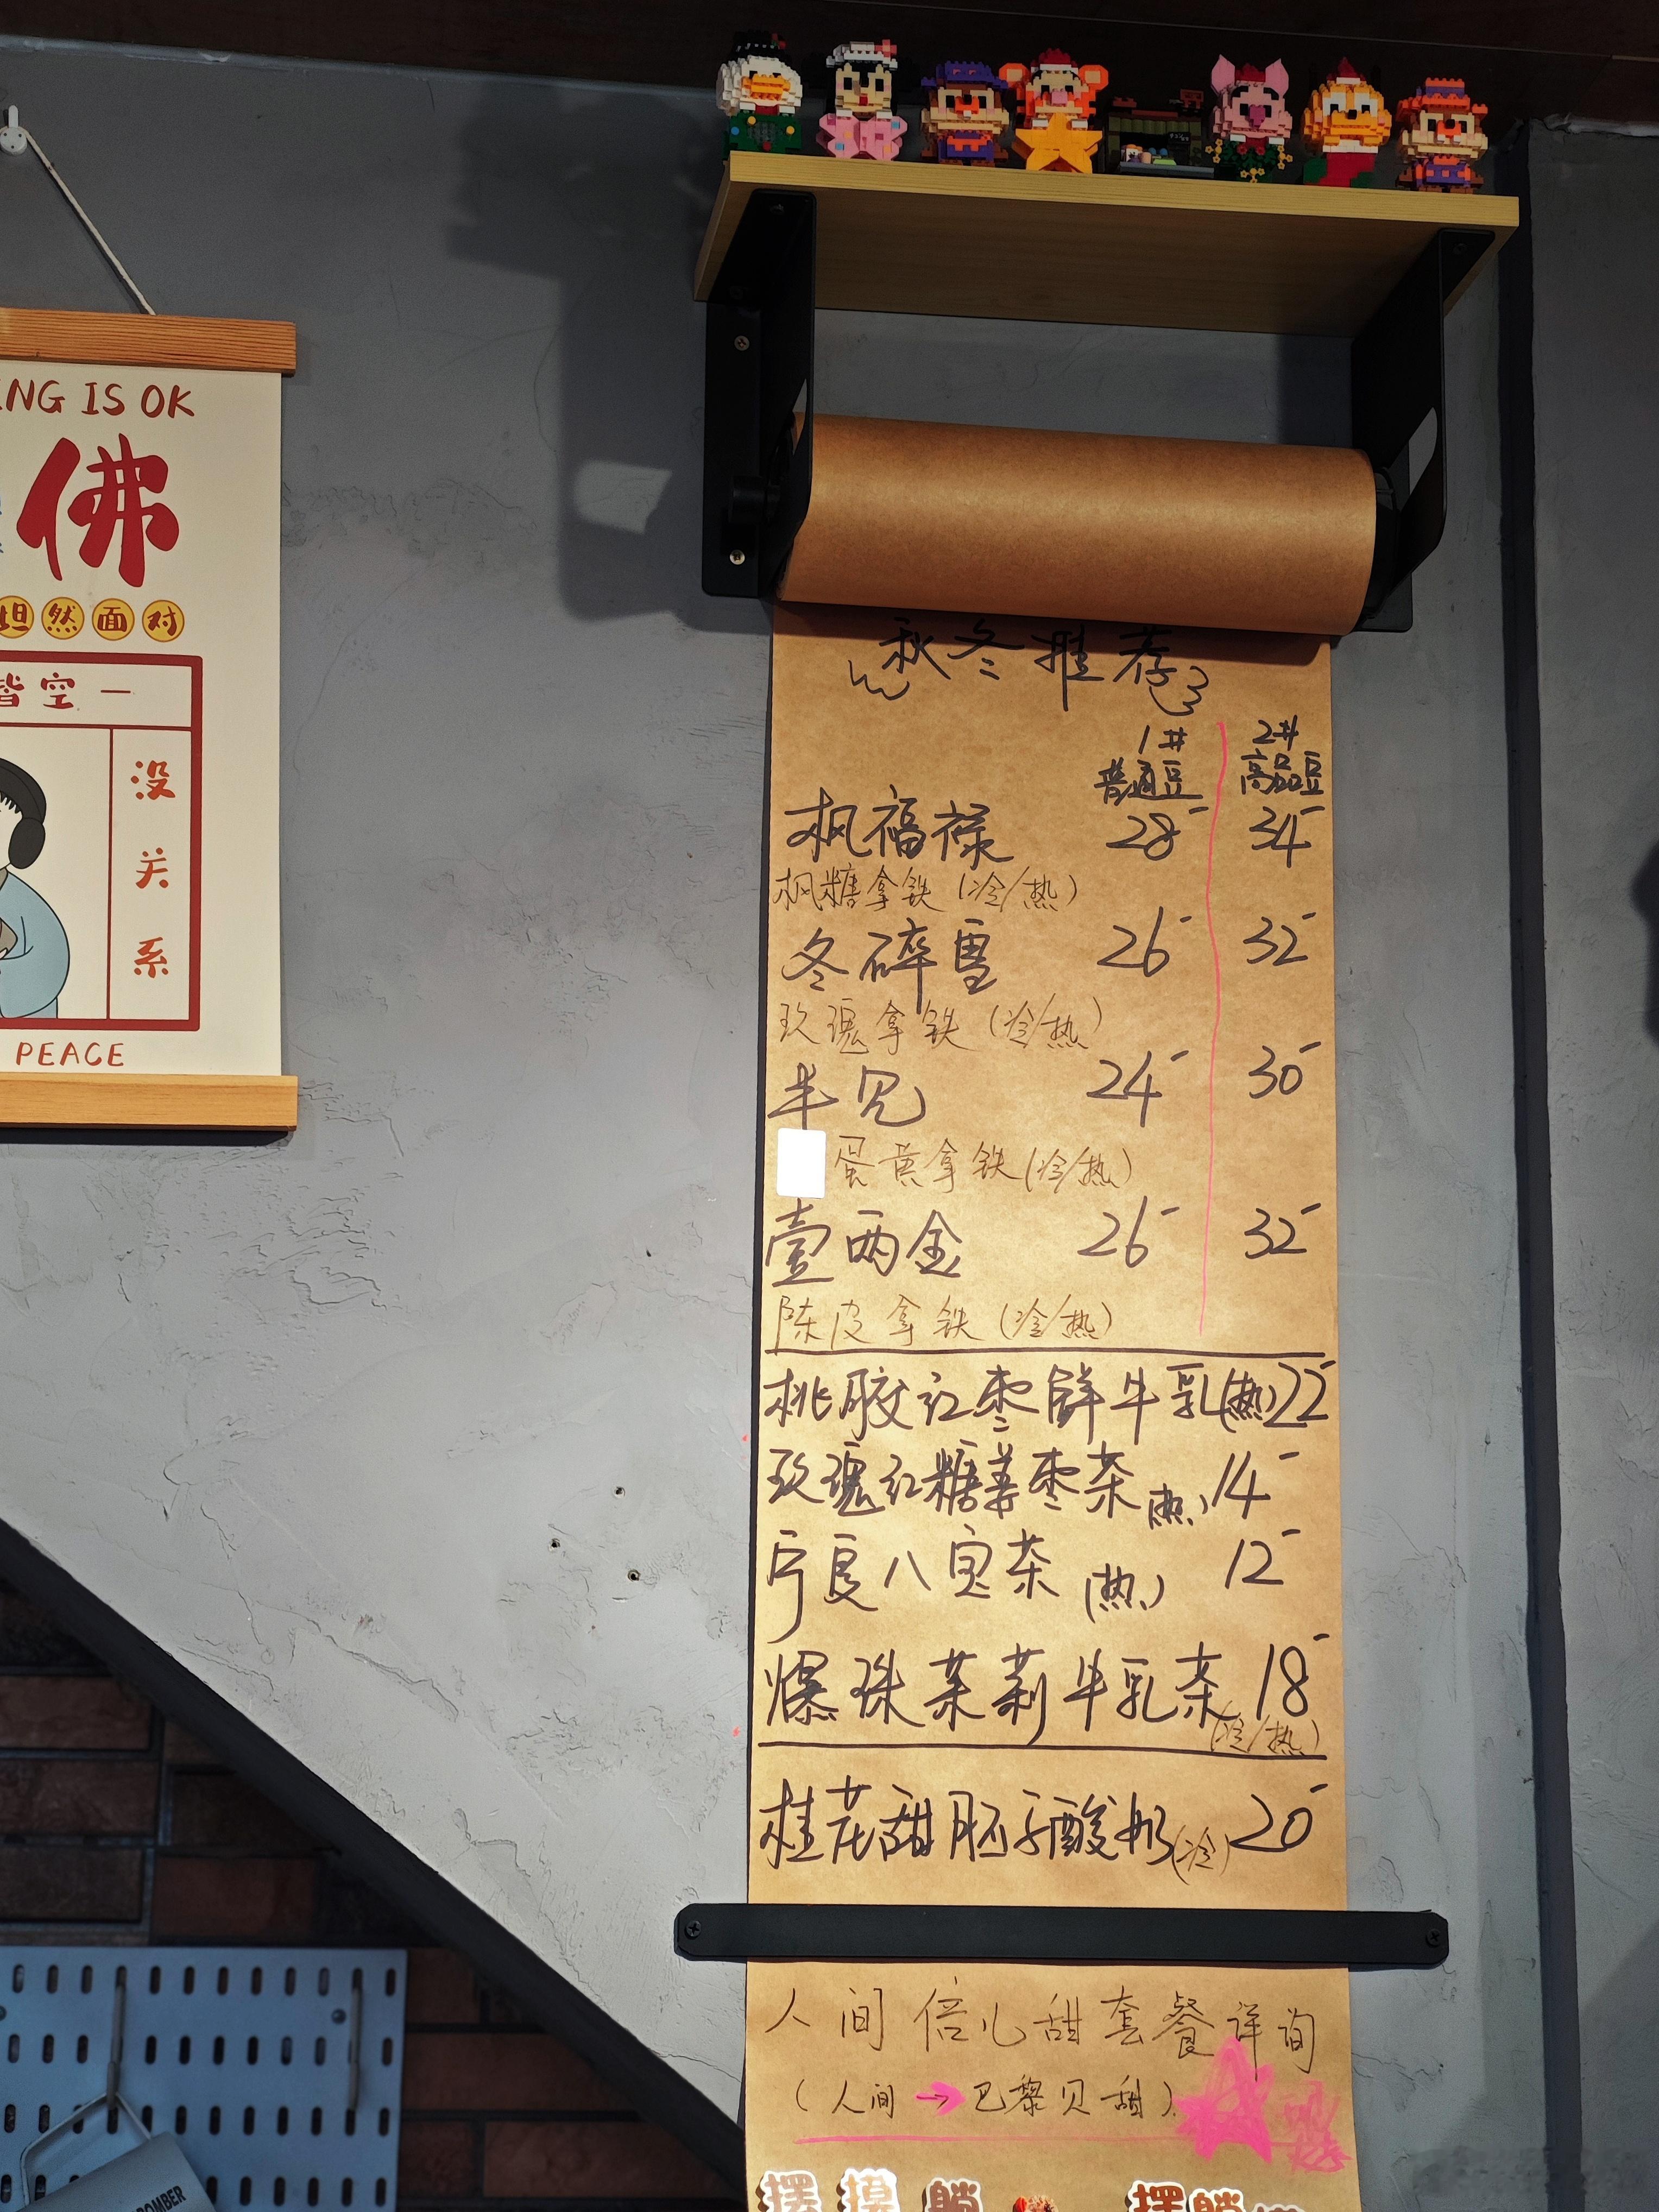 NG IS OK
佛
坦然面对
皆空一
没
关
系
PEACE
秋冬推荐
1# 2#
普通豆 高品豆
枫福禄 28- 34-
枫糖拿铁（冷/热）
冬碎雪 26- 32-
玫瑰拿铁（冷/热）
半见 24- 30-
蛋黄拿铁（冷/热）
壹两金 26- 32-
陈皮拿铁（冷/热）
桃胶红枣鲜牛乳(热)22-
玫瑰红糖姜枣茶(热)14-
宁夏八宝茶(热) 12-
爆珠茉莉牛乳茶 18-
(冷/热)
桂花甜胚子酸奶(冷)20-
人间倍心甜套餐详询
（人间→巴黎贝甜）
OMBER